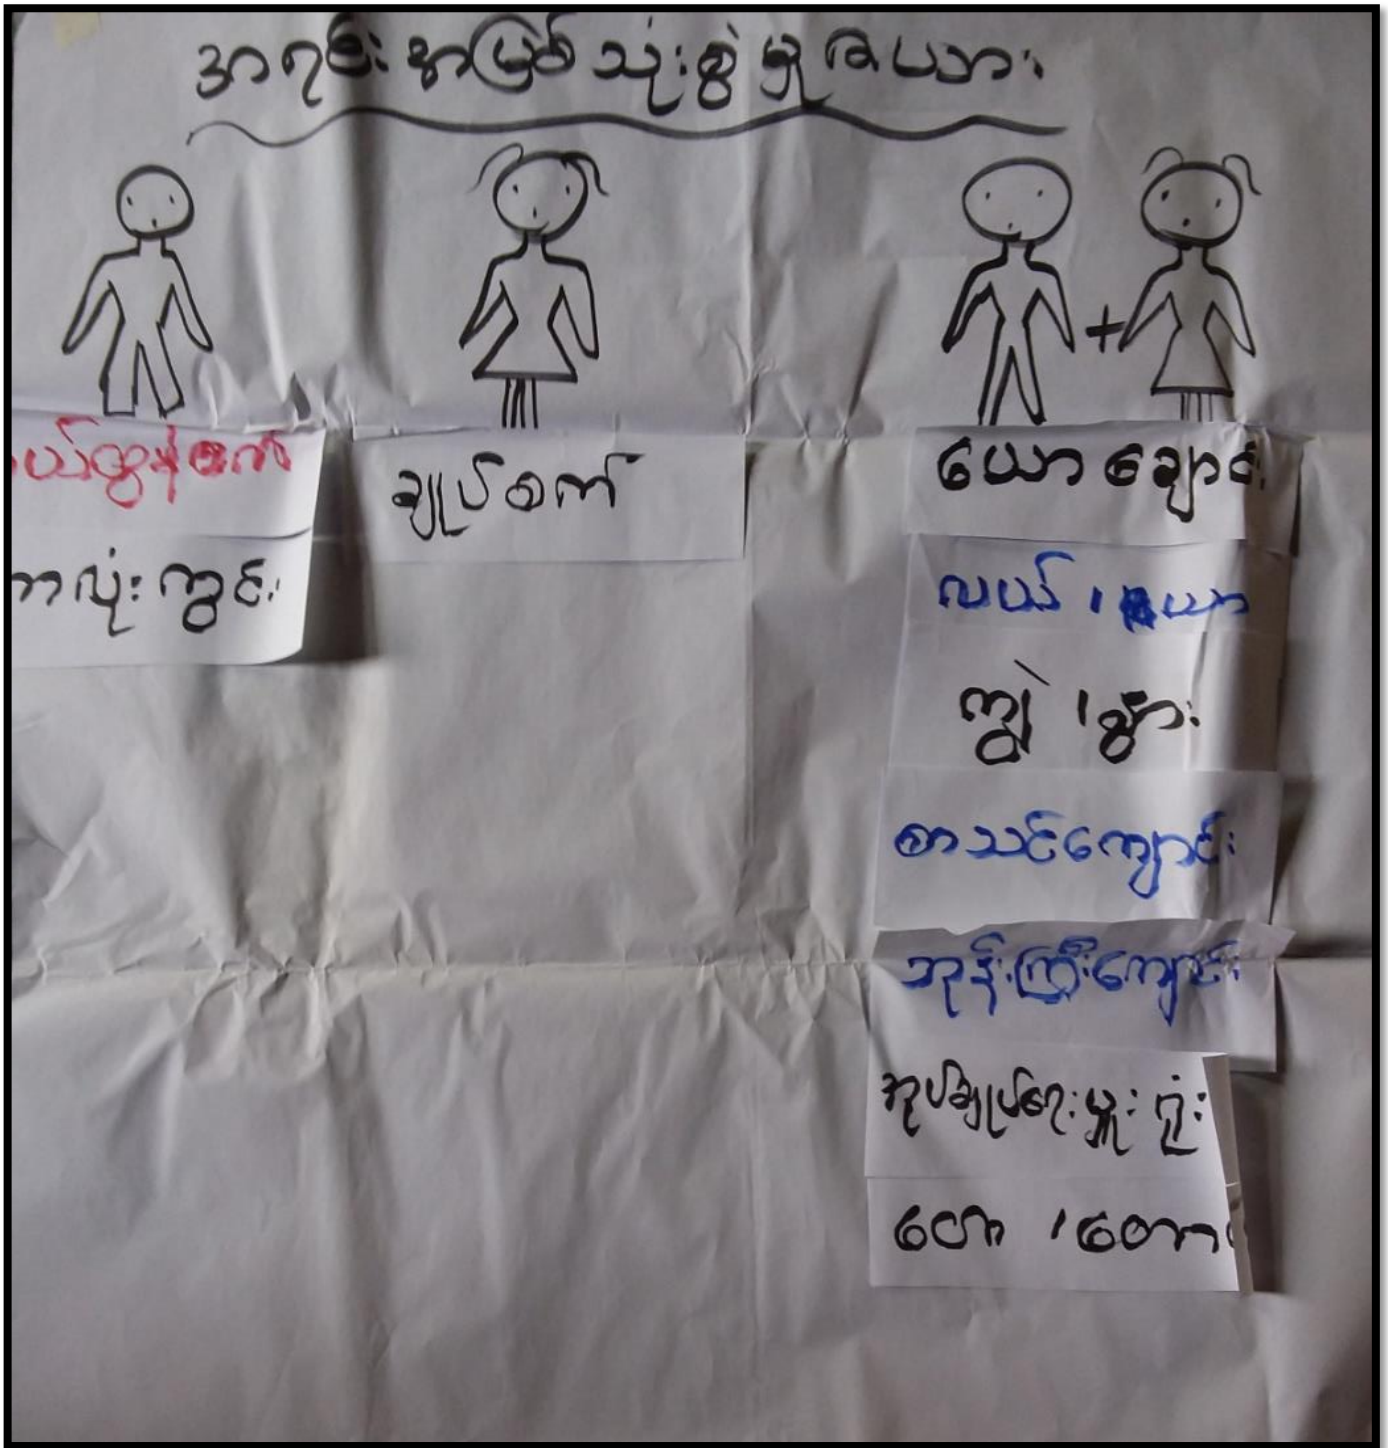 အရင်းအမြစ်သုံးစွဲမှုဇယား
ယ်ထွန်စက်
ဘလုံးကွင်း
ချုပ်စက်
ယောချောင်း
လယ်၊ ယာ
ကျွဲ၊ နွား
စာသင်ကျောင်း
ဘုန်းကြီးကျောင်း
အုပ်ချုပ်ရေးမှူးရုံး
တော၊